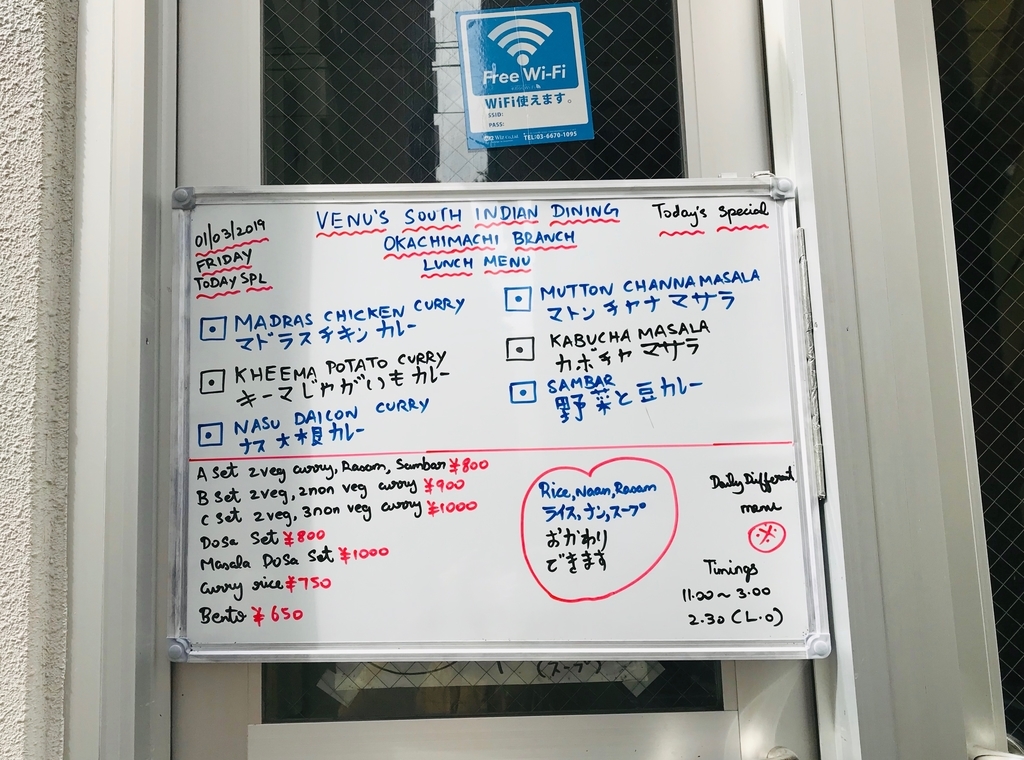 Free Wi-Fi
WiFi使えます。
SSID:
PASS:
TEL:03-6670-1095
01/03/2019
FRIDAY
TODAY SPL
VENU'S SOUTH INDIAN DINING
OKACHIMACHI BRANCH
LUNCH MENU
Today's Special
MADRAS CHICKEN CURRY
マドラスチキンカレー
KHEEMA POTATO CURRY
キーマじゃがいもカレー
NASU DAICON CURRY
ナス大根カレー
MUTTON CHANNA MASALA
マトン チャナ マサラ
KABUCHA MASALA
カボチャ マサラ
SAMBAR
野菜と豆カレー
A Set 2veg curry, Rasam, Sambar ¥800
B Set 2veg, 2non veg curry ¥900
C set 2veg, 3non veg curry ¥1000
Dosa Set ¥800
Masala Dosa Set ¥1000
Curry rice ¥750
Bento ¥650
Rice, Naan, Rasam
ライス,ナン,スープ
おかわり
できます
Daily Different
menu
※
Timings
11.00~3.00
2.30 (L.O)
(スープ)